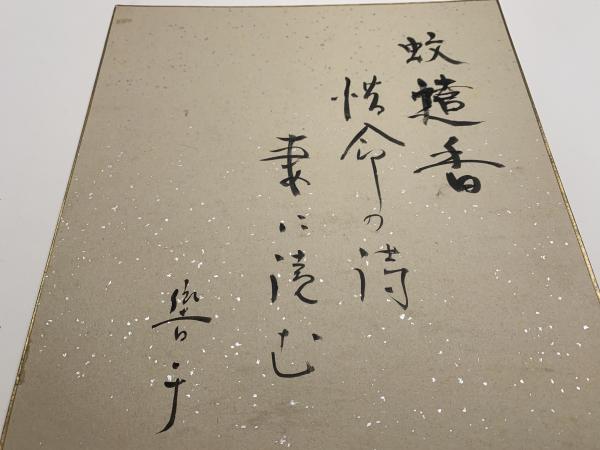 蚊遣香
惜命の詩
妻に読む